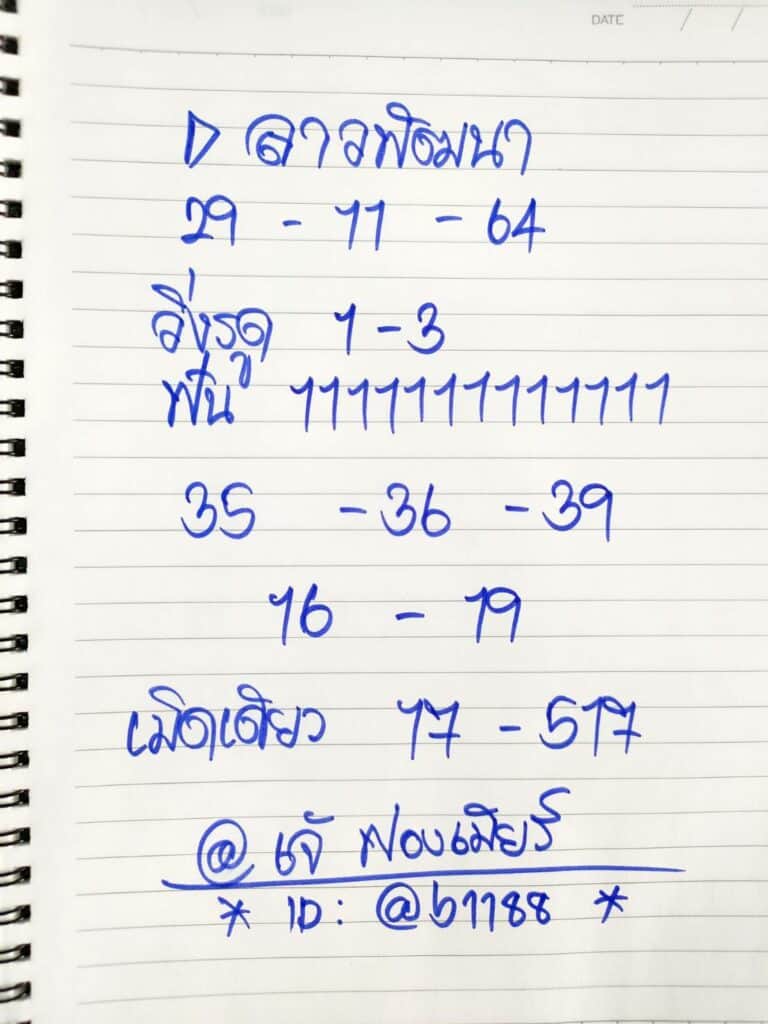 DATE / /
D ลาวพัฒนา
29 - 11 - 64
วิ่งรูด 1 - 3
ฟัน 1111111111111
35 - 36 - 39
16 - 19
เม็ดเดียว 17 - 517
@ เจ๊ ฟองเบียร์
* ID : @b1188 *